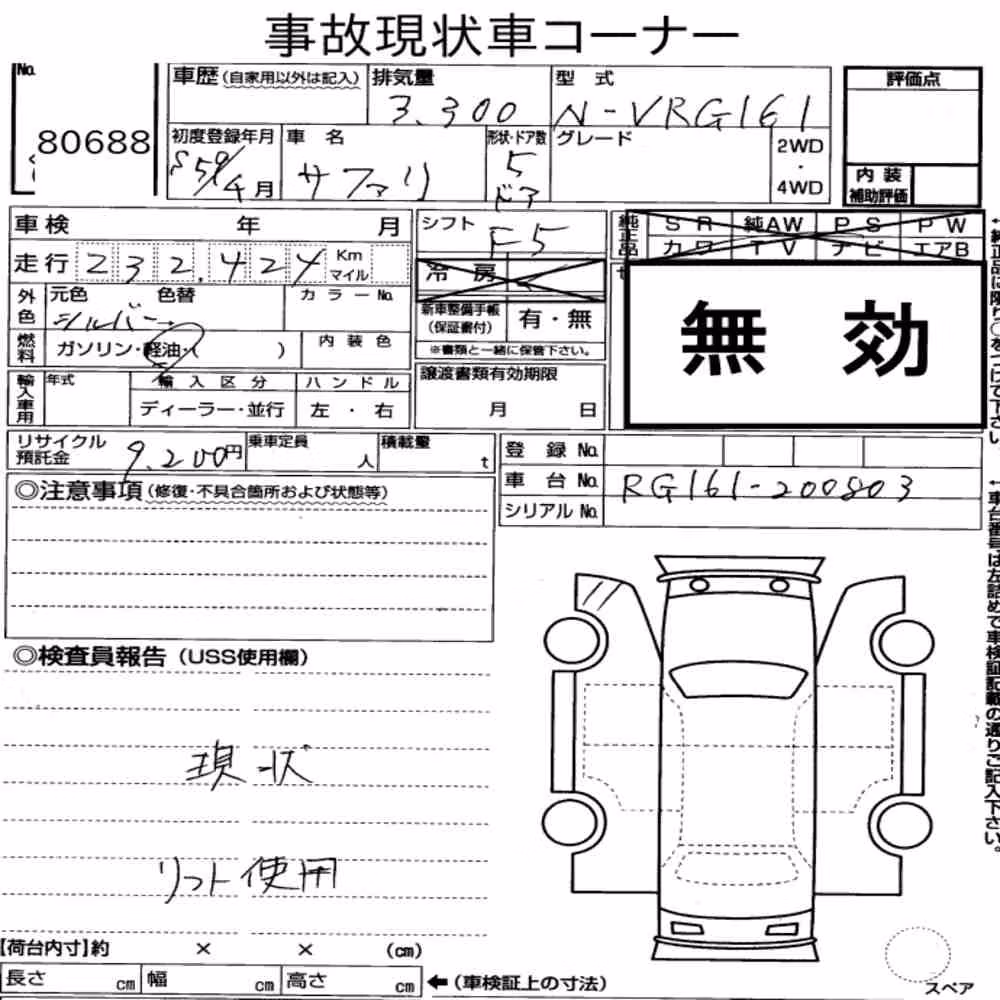 事故現状車コーナー
No. 80688
車歴(自家用以外は記入) 排気量 3.300 型式 N-VRG161 評価点
初度登録年月 S59/4月 車名 サファリ 形状・ドア数 5ドア グレード 2WD・4WD
内装補助評価
車検 年 月 シフト F5
純正品 SR 純AW PS PW
カワ TV ナビ エアB
走行 232,424 Km マイル 冷房
外色 元色 シルバー 色替 カラーNo.
新車整備手帳(保証書付) 有・無
※書類と一緒に保管下さい。
無効
燃料 ガソリン・軽油・( ) 内装色
輸入車用 年式 輸入区分 ハンドル
ディーラー・並行 左・右
譲渡書類有効期限
月 日
リサイクル預託金 9.200円 乗車定員 人 積載量 t
登録No.
車台No. RG161-200803
シリアルNo.
◎注意事項(修復・不具合箇所および状態等)
◎検査員報告(USS使用欄)
現状
リフト使用
【荷台内寸】約 × × (cm)
長さ cm 幅 cm 高さ cm ←(車検証上の寸法)
スペア
←純正品に限り○をつけて下さい。
←車台番号は左詰めで車検証記載の通りご記入下さい。